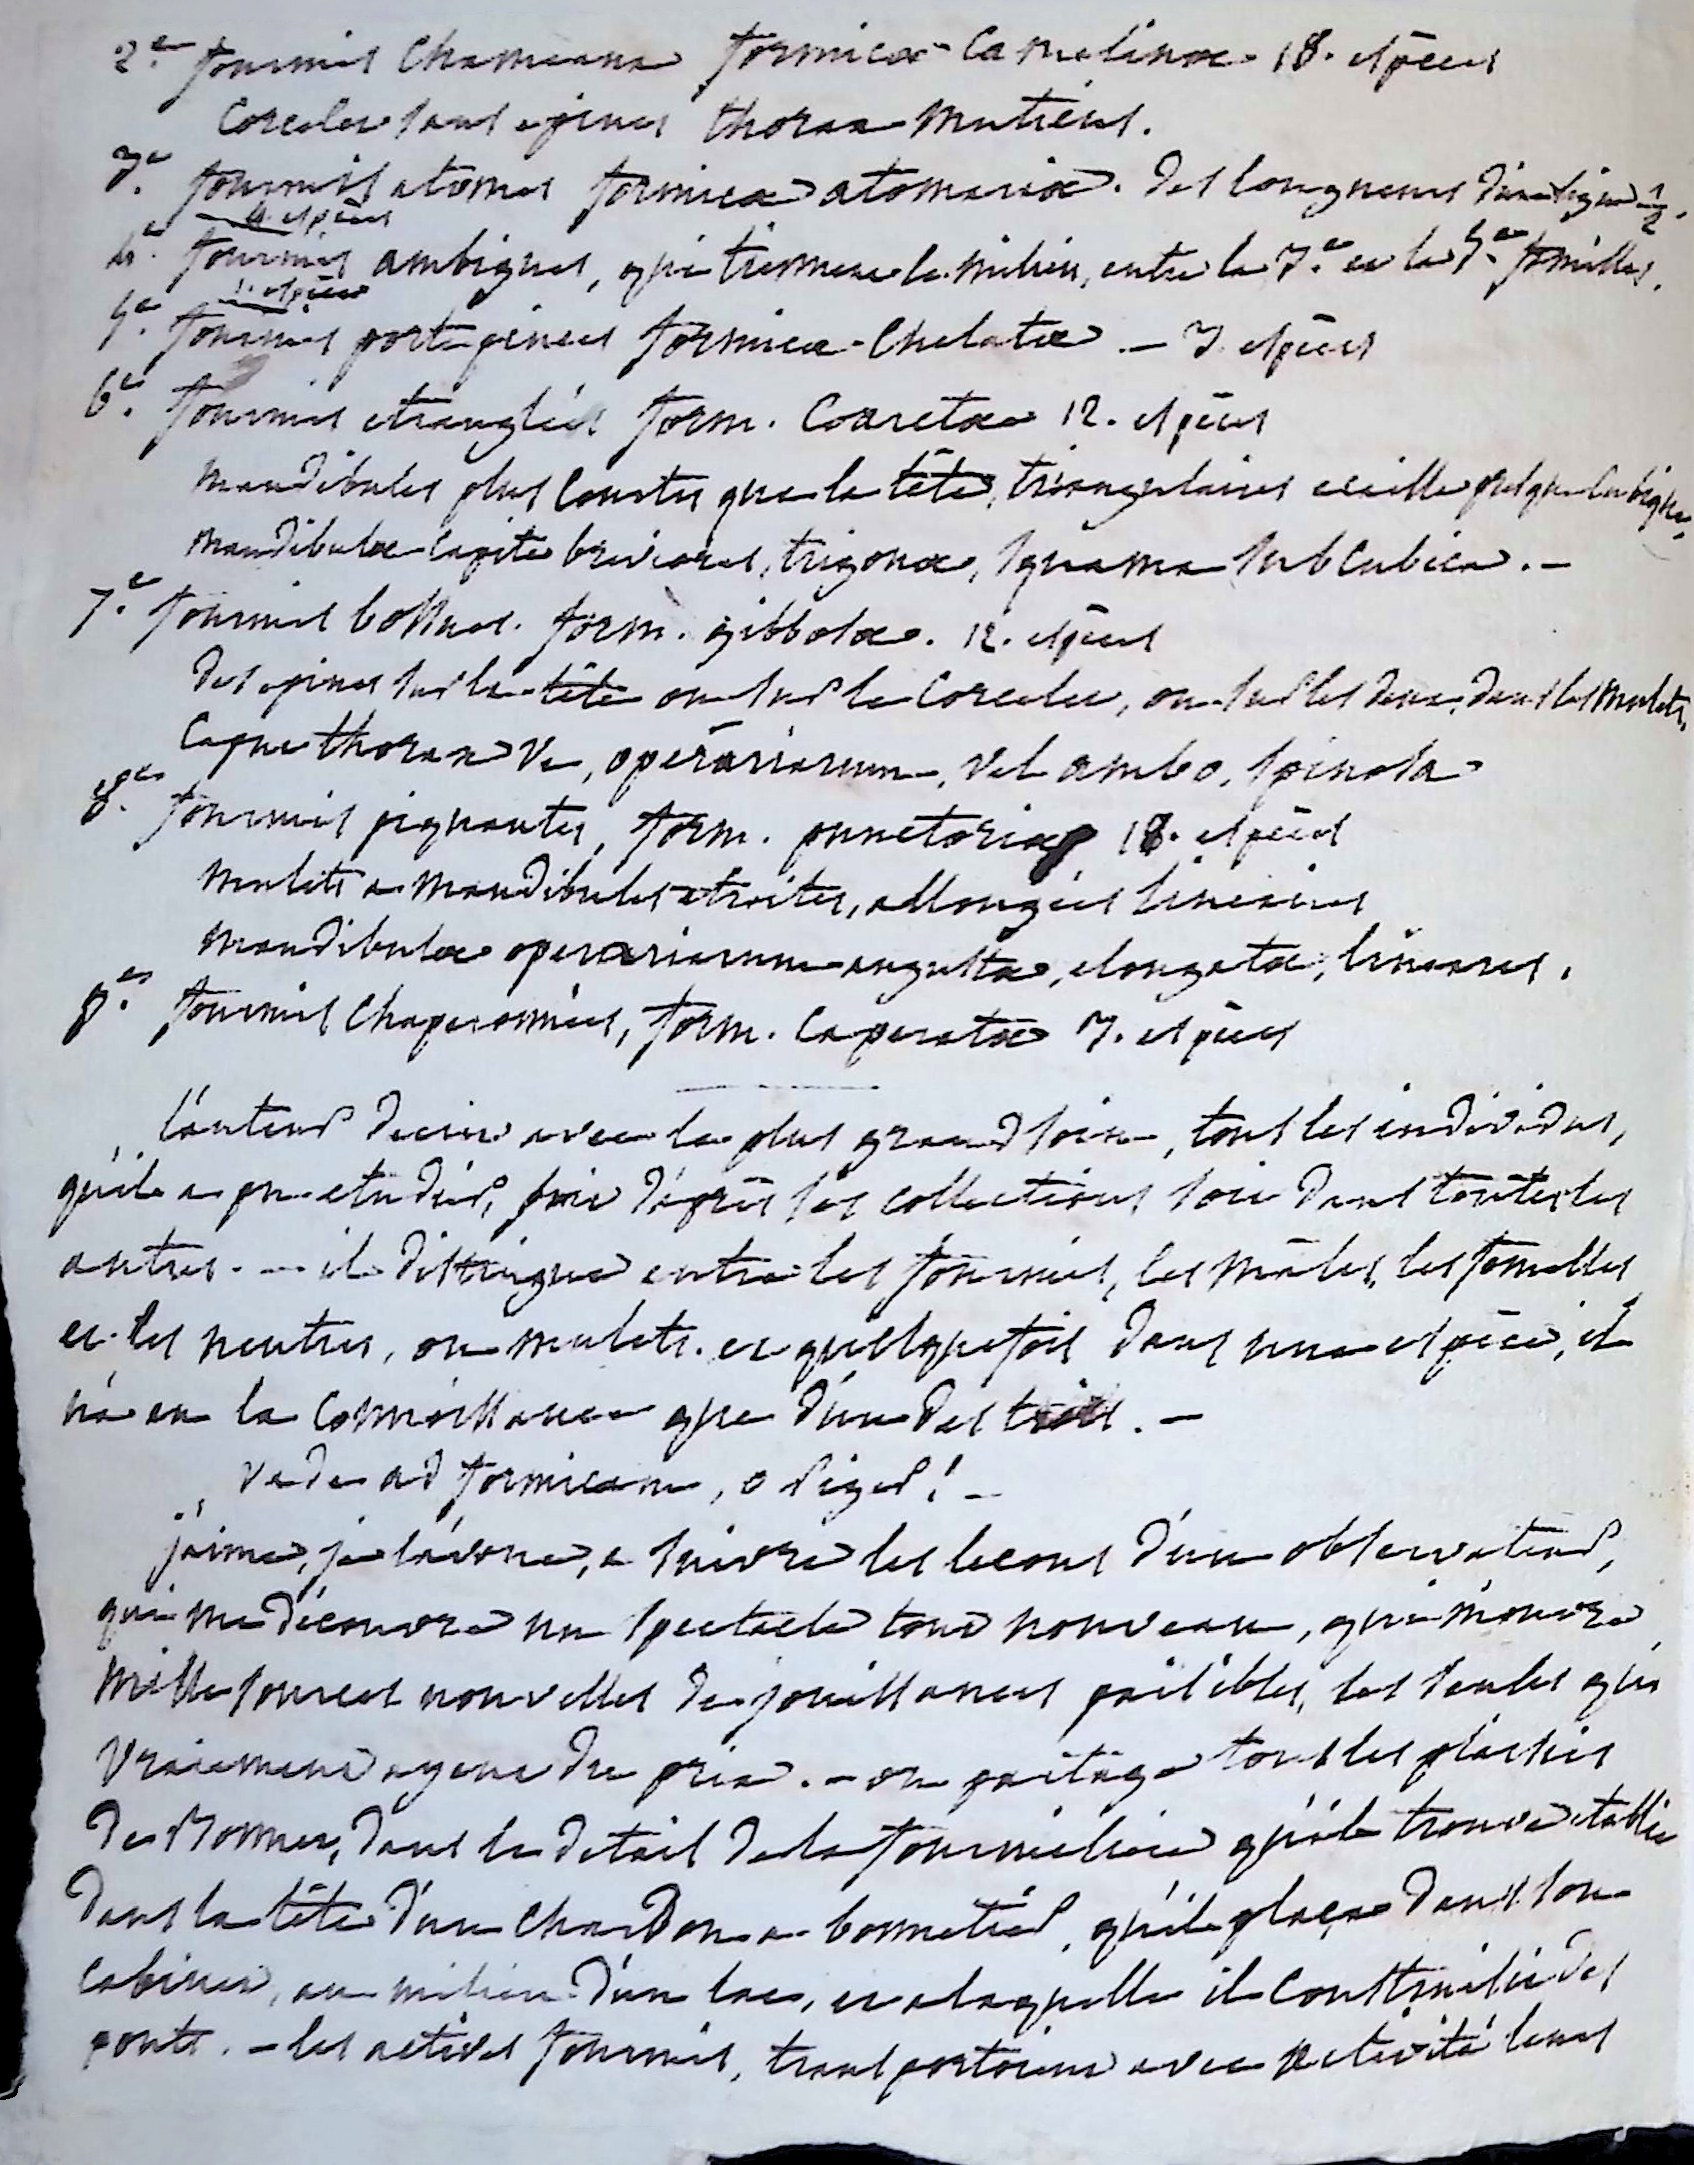 2.e fourmis Chameaux formicæ Camelinæ 18. espèces
Corcelet sans epines thorax muticus.
3.e fourmis atomes formicæ atomariæ. des longueurs d'une ligne 1/2.
4. espèces
4.e fourmis ambigues, qui tiennent le milieu, entre la 3.e et la 5.e familles.
1. espèce
5.e fourmis porte pinces formicæ Chelatæ — 3 espèces
6.e fourmis etranglées form. Coarctæ 12. espèces
mandibules plus Courtes que la tête, triangulaires ecaille presque Cubique,
mandibulæ capite breviores, trigonæ, squama subCubica. —
7.e fourmis bossues. form. gibbosæ. 12. espèces
des epines sur la tête ou sur le Corcelet, ou sur les deux, dans les mulets.
Caput thorax Ve, operariarum, vel ambo, spinosa
8.e fourmis piquantes, form. punctoriæ 18. espèces
mulets a mandibules etroites, allongées lineaires
mandibulæ operariarum angustæ, elongatæ, lineares.
9.e fourmis Chaperonnées, form. Caperatæ 3. espèces
L'auteur decrit avec le plus grand soin, tous les individus,
qu'il a pu etudier, soit d'après ses collections soit dans toutes les
autres. — il distingue entre les fourmis, les mâles, les femelles
et les neutres, ou mulets. et quelquefois dans une espèce, il
n'a eu la Connoissance que d'un des trois. —
vade ad formicam, o piger! —
j'aime, je l'avoue, a suivre les lecons d'un observateur,
qui me découvre un spectacle tout nouveau, qui m'ouvre
mille sources nouvelles de jouissances paisibles, les seules qui
vraiement ayent du prix. — on partage tous les plaisirs
de Bonnet, dans le detail de la fourmiliere qu'il trouve etablie
dans la tête d'un Chardon a bonnetier, qu'il plaça dans son
cabinet, au milieu d'un lac, et a laquelle il Construisit des
ponts. — les actives fourmis, transportoient avec activité leurs